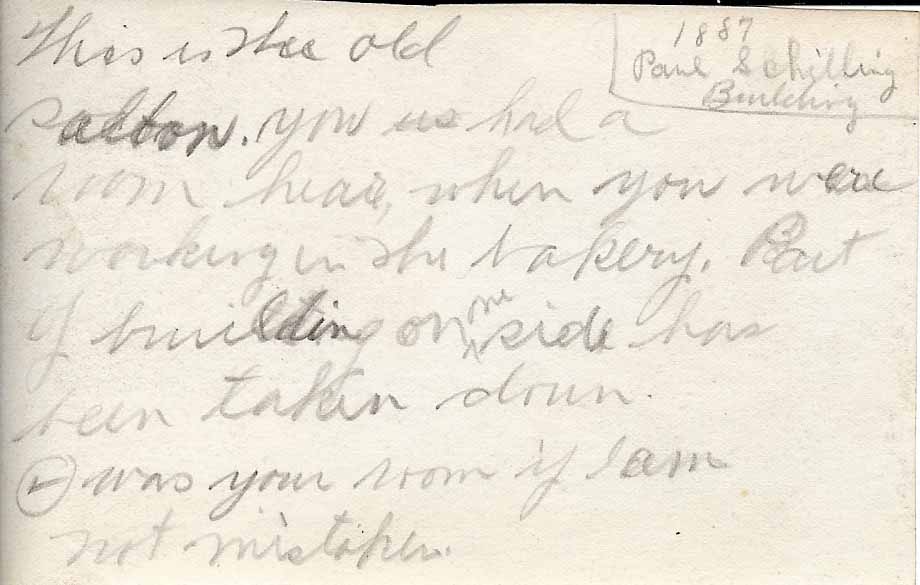 1887
Paul Schilling
Building
This is the old
salton. you us had a
room hear, when you were
working in the bakery. Part
of building on one side has
been taken down.
was your room if I am
not mistaken.